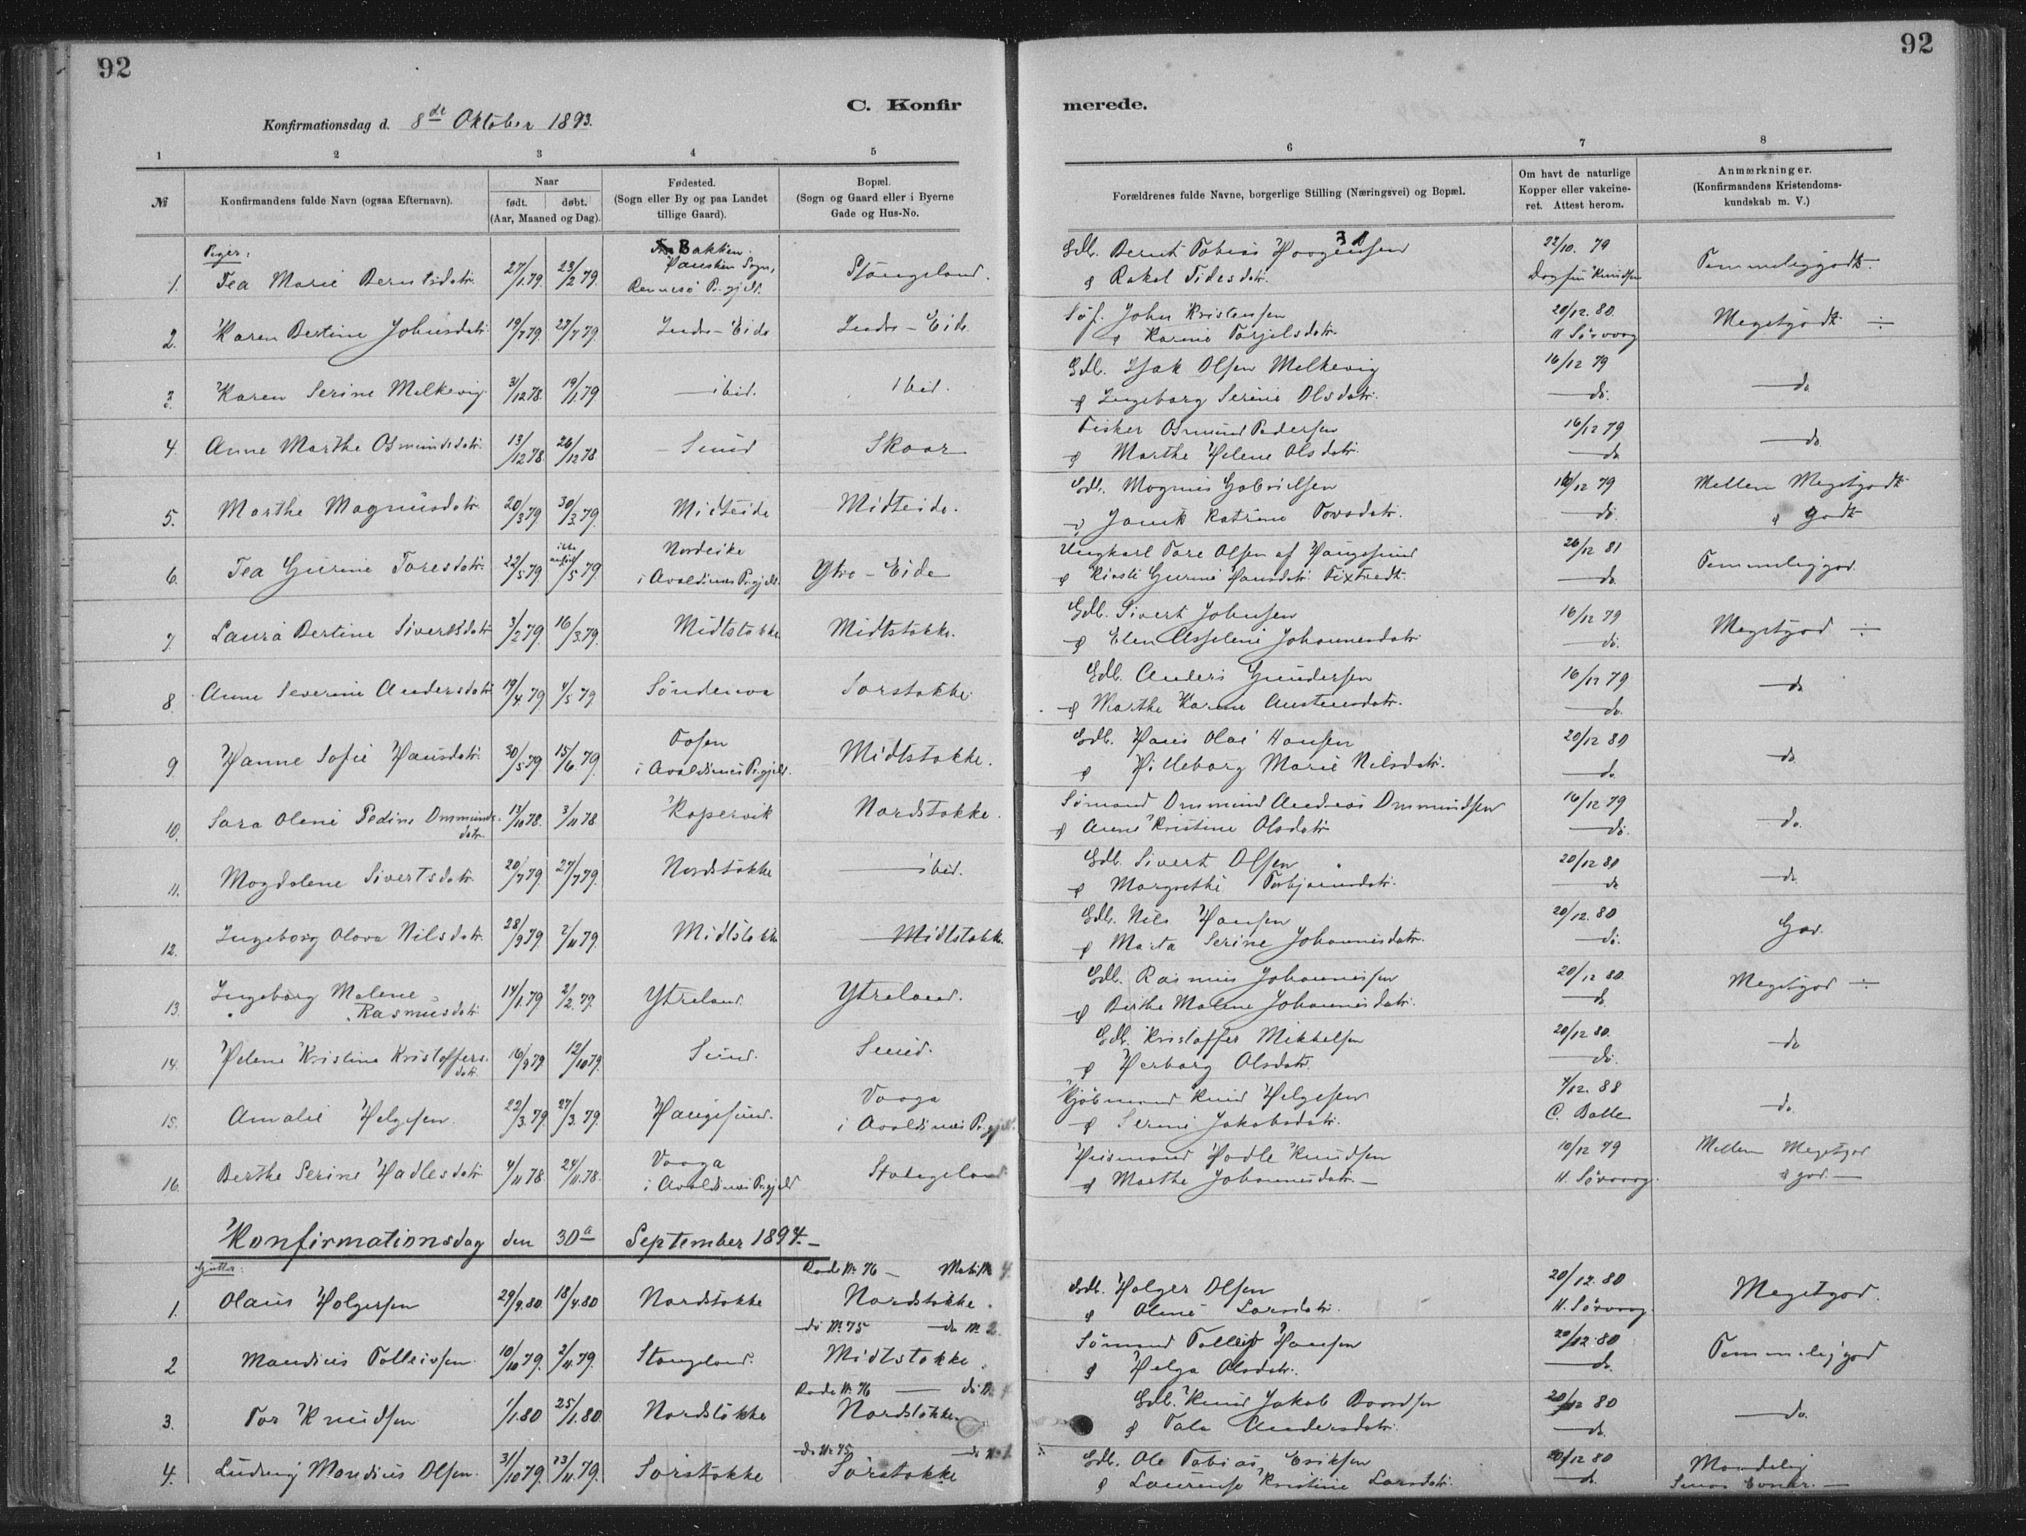 92
92
C. Konfir
merede.
Konfirmationsdag d. 8de Oktober 1893.
1 2 3 4 5 6 7 8
№
Konfirmandens fulde Navn (ogsaa Efternavn).
Naar
født. døbt.
(Aar, Maaned og Dag).
Fødested.
(Sogn eller By og paa Landet
tillige Gaard).
Bopæl.
(Sogn og Gaard eller i Byerne
Gade og Hus-No.
Forældrenes fulde Navne, borgerlige Stilling (Næringsvei) og Bopæl.
Om havt de naturlige
Kopper eller vakcine-
ret. Attest herom.
Anmærkninger.
(Konfirmandens Kristendoms-
kundskab m. V.)
Piger:
1. Tea Marie Berntsdatr. 27/1.79 23/2 79. Bakken Sogn, Rennesø Prgjld. Stangeland. Gdb. Bernt Tobias
& Rakel Tidesdatr. 22/10. 79 Knudsen Temmeliggodt.
2. Karen Bertine Johnsdatr. 19/7 79. 27/7 79. Indre-Eide Indre-Eide Søf. John Kristensen
& Karine Torjelsdatr. 20/12 80. Meget godt ÷
3. Karen Serine Melkevig. 3/12 78. 19/1 79 ibid. ibid. Gdb. Isak Olsen Melkevig
& Ingeborg Serine Olsdatr. 16/12 79 do. do
4. Anne Marthe Osmundsdatr. 13/12 78. 26/12 78 Sund Skaar Fisker Osmund Pedersen
& Marthe Helene Olsdatr. 16/12 79 do do
5. Marthe Magnusdatr. 20/3 79 30/3 79. Midteide Midteide. Gdb. Magnus Gabrielsen
& Katrine 16/12 79 do. Mellem Megetgodt & Godt
6. Tea Gurine Toresdatr. 22/5 79 /5 79. i Avaldsnes Prgjld. Ytre-Eide Ungkarl Tore Olsen af Haugesund
& Kirsti Gurine Hansdatr. 26/12 81 do. Temmeliggod.
7. Laura Bertine Sivertsdatr. 3/2 79. 16/3.79. Midtstokke Midtstokke. Gdb. Sivert Johnsen
& Elen Johannesdatr. 16/12 79 do. Megetgod ÷
8. Anne Severine Andersdatr. 19/4 79 4/5 79 Sørstokke Gdb. Anders Gundersen
& Marthe Karine Austensdatr. 16/12 79 do. do
9. Hanne Sofie Hansdatr. 30/5 79 15/6.79. Fosen i Avaldsnes Prgjld. Midtstokke. Gdb. Hans Olai Hansen
& Hilleborg Marie Nilsdatr. 20/12 80 do do
10. Sara Olene Pedine Ommundsdatr. 13/10 78. 3/11 78 Kopervik Nordstokke. Sømand Ommund Andreas Ommundsen
& Anne Kristine Olsdatr. 16/12 79 do. do.
11. Magdalene Sivertsdatr. 20/7 79 27/7 79. Nordstokke ibid. Gdb. Sivert Olsen
& Margrethe Torbjørnsdatr. 20/12 80 do do
12. Ingeborg Olava Nilsdatr. 28/9 79 2/11 79. Midtstokke Midtstokke. Gdb. Nils Hansen
& Marta Serine Johannesdatr. 20/12.80 do. God.
13. Ingeborg Malene Rasmusdatr. 14/1.79 2/2.79. Ytreland Ytreland. Gdb. Rasmus Johannesen
& Berthe Malene Johannesdatr. 20/12 80. do Megetgod ÷
14. Helene Kristine Kristoffersdatr. 16/9 79. 12/10 79. Sund. Sund. Gdb. Kristoffer Mikkelsen
& Herborg Olsdatr. 20/12 80. do. do
15. Amalie Helgesen. 22/3.79. 27/3.79. Haugesund. Vaaga i Avaldsnes Prgjld. Kjøbmand Knud Helgesen
& Serine Jakobsdatr. 4/12. 88 do.
16. Berthe Serine Hadlesdatr. 4/11 78. 24/11.78. Vaaga i Avaldsnes Prgjld Stangeland Husmand Hadle Knudsen
& Marthe Johannesdatr. 10/12 79 Mellem Megetgod & god.
Konfirmationsdag den 30te September 1894.
Gutter:
Rode № 76 4.
1. Olaus Holgersen 29/9.80. 18/4.80 Nordstokke Nordstokke. Gdb. Holger Olsen
& Olene Larsdatr. 20/12.80 Megetgod.
do № 75 do № 2.
2 Mandius Tolleivsen. 10/10 79. 2/11.79. Stangeland. Midtstokke. Sømand Tolleif Hansen
& Helga Olsdatr. 20/12.80 do. Temmeliggod
Rode № 76 do №
3. Tor Knudsen 1/1.80 25/1.80 Nordstokke Nordstokke Gdb. Knud Jakob
& Tala Andersdatr. 20/12 80 do. do.
do № 75 do № 1
4. Ludvig Mandius Olsen. 31/10 79. 23/11.79. Sørstokke Sørstokke Gdb. Ole Tobias Eriksen
& Laurense Kristine Larsdatr. 20/12 80 do.